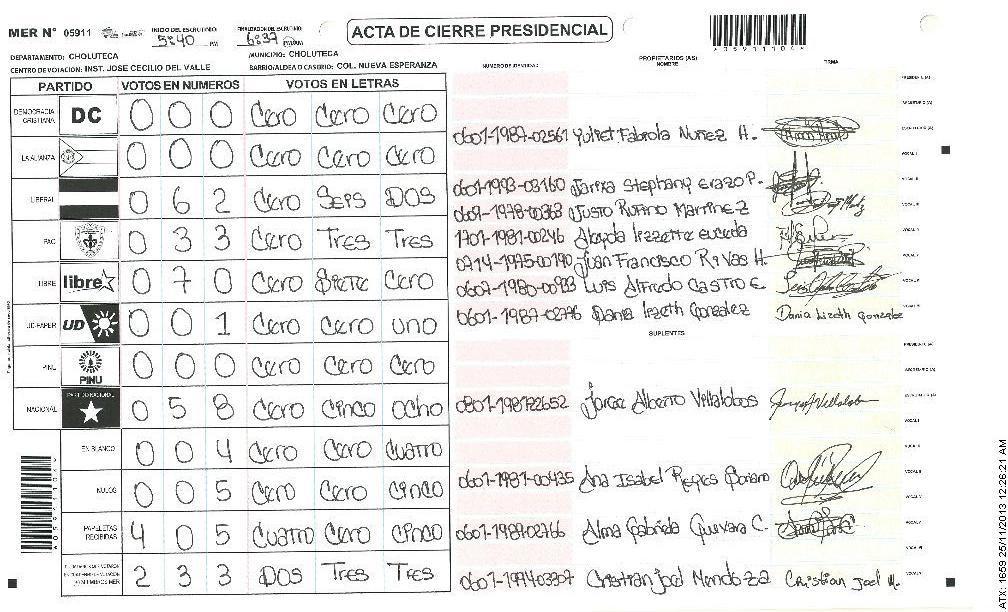 MER N° 05911
INICIO DEL ESCRUTINIO
5:40 PM
FINALIZACION DEL ESCRUTINIO
6:39 PM
ACTA DE CIERRE PRESIDENCIAL
DEPARTAMENTO: CHOLUTECA
MUNICIPIO: CHOLUTECA
CENTRO DE VOTACION: INST. JOSE CECILIO DEL VALLE
BARRIO/ALDEA O CASERIO: COL. NUEVA ESPERANZA
PARTIDO VOTOS EN NUMEROS VOTOS EN LETRAS
DEMOCRACIA CRISTIANA DC 0 0 0 Cero Cero Cero
LA ALIANZA 0 0 0 Cero Cero Cero
LIBERAL 0 6 2 Cero Seis DOS
PAC 0 3 3 Cero Tres Tres
LIBRE libre 0 7 0 Cero Siete Cero
UD-FAPER UD 0 0 1 Cero Cero uno
PINU PINU 0 0 0 Cero Cero Cero
NACIONAL PARTIDO NACIONAL 0 5 8 Cero Cinco Ocho
EN BLANCO 0 0 4 Cero Cero Cuatro
NULOS 0 0 5 Cero Cero Cinco
PAPELETAS RECIBIDAS 4 0 5 Cuatro Cero Cinco
2 3 3 DOS Tres Tres
NUMERO DE IDENTIDAD
PROPIETARIOS (AS)
NOMBRE
FIRMA
0601-1987-02561 Yuliet Fabiola Nuñez H.
0601-1993-03160 Stephany Erazo P.
0609-1978-00363 Justo Rufino Martinez
1701-1981-00246 Izzette euceda
0714-1975-00190 Juan Francisco Rivas H.
0607-1980-00983 Luis Alfredo CASTRO E.
0601-1987-02776 Dania Lizeth Gonzalez Dania Lizeth Gonzalez
SUPLENTES
Jorge Alberto Villalobos
0601-1987-00435 Ana Isabel Reyes
Alma Gabriela Guevara C.
Cristian joel Mendoza Cristian Joel M.
PRESIDENTE (A)
SECRETARIO (A)
ESCRUTADOR (A)
VOCAL I
VOCAL II
VOCAL III
VOCAL IV
VOCAL V
ATX: 1659 25/11/2013 12:26:21 AM